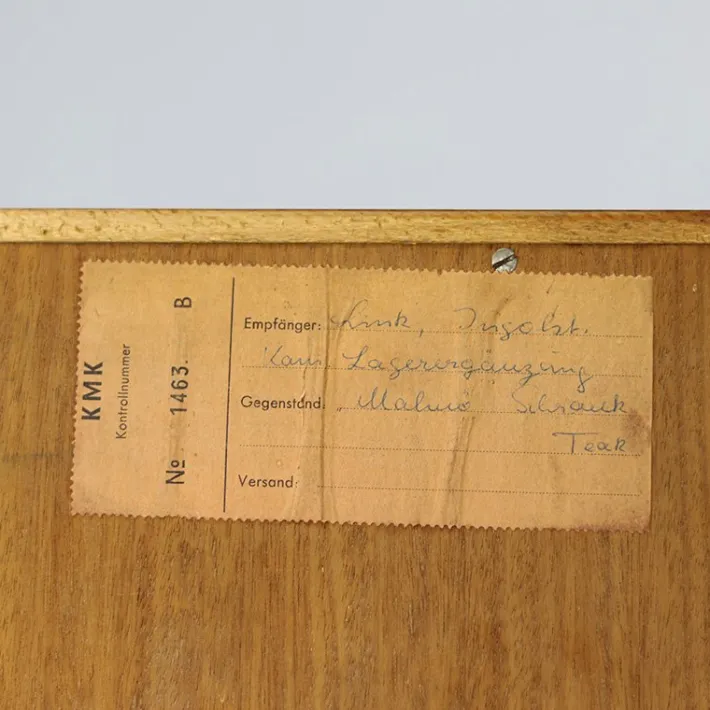 KMK
Kontrollnummer
No 1463. B
Empfänger: Link, Ingolst.
Lagerergänzung
Gegenstand: „Malmö Schrank
Teak
Versand: